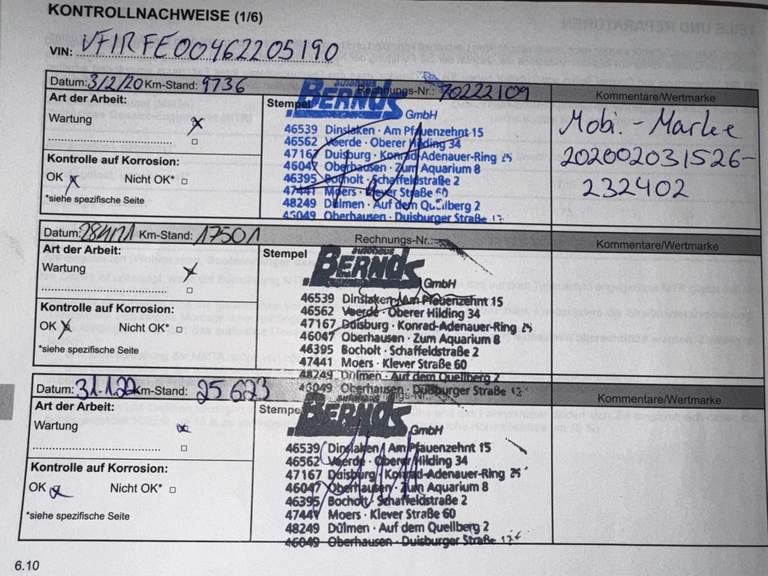 KONTROLLNACHWEISE (1/6)
VIN: VF1RFE00462205190
Datum: 3/2/20 Km-Stand: 9736 Rechnungs-Nr.: 70222109 Kommentare/Wertmarke
Art der Arbeit:
Wartung x
Kontrolle auf Korrosion:
OK x Nicht OK* □
*siehe spezifische Seite
Stempel
autohaus
BERNDS GmbH
46539 Dinslaken · Am Pfauenzehnt 15
46562 Voerde · Oberer Hilding 34
47167 Duisburg · Konrad-Adenauer-Ring 25
46047 Oberhausen · Zum Aquarium 8
46395 Bocholt · Schaffeldstraße 2
47441 Moers · Klever Straße 60
48249 Dülmen · Auf dem Quellberg 2
46049 Oberhausen · Duisburger Straße
Mobi.-Marke
202002031526-
232402
Datum: 28/1/21 Km-Stand: 17501 Rechnungs-Nr.: Kommentare/Wertmarke
Art der Arbeit:
Wartung x
Kontrolle auf Korrosion:
OK x Nicht OK* □
*siehe spezifische Seite
Stempel
autohaus
BERNDS GmbH
46539 Dinslaken · Am Pfauenzehnt 15
46562 Voerde · Oberer Hilding 34
47167 Duisburg · Konrad-Adenauer-Ring 25
46047 Oberhausen · Zum Aquarium 8
46395 Bocholt · Schaffeldstraße 2
47441 Moers · Klever Straße 60
48249 Dülmen · Auf dem Quellberg 2
46049 Oberhausen · Duisburger Straße
Datum: 31.1.22 Km-Stand: 25623 Kommentare/Wertmarke
Art der Arbeit:
Wartung x
Kontrolle auf Korrosion:
OK x Nicht OK* □
*siehe spezifische Seite
Stempel
BERNDS GmbH
46539 Dinslaken · Am Pfauenzehnt 15
46562 Voerde · Oberer Hilding 34
47167 Duisburg · Konrad-Adenauer-Ring 25
46047 Oberhausen · Zum Aquarium 8
46395 Bocholt · Schaffeldstraße 2
47441 Moers · Klever Straße 60
48249 Dülmen · Auf dem Quellberg 2
46049 Oberhausen · Duisburger Straße
6.10